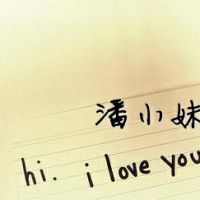 潘小妹
hi. i love you